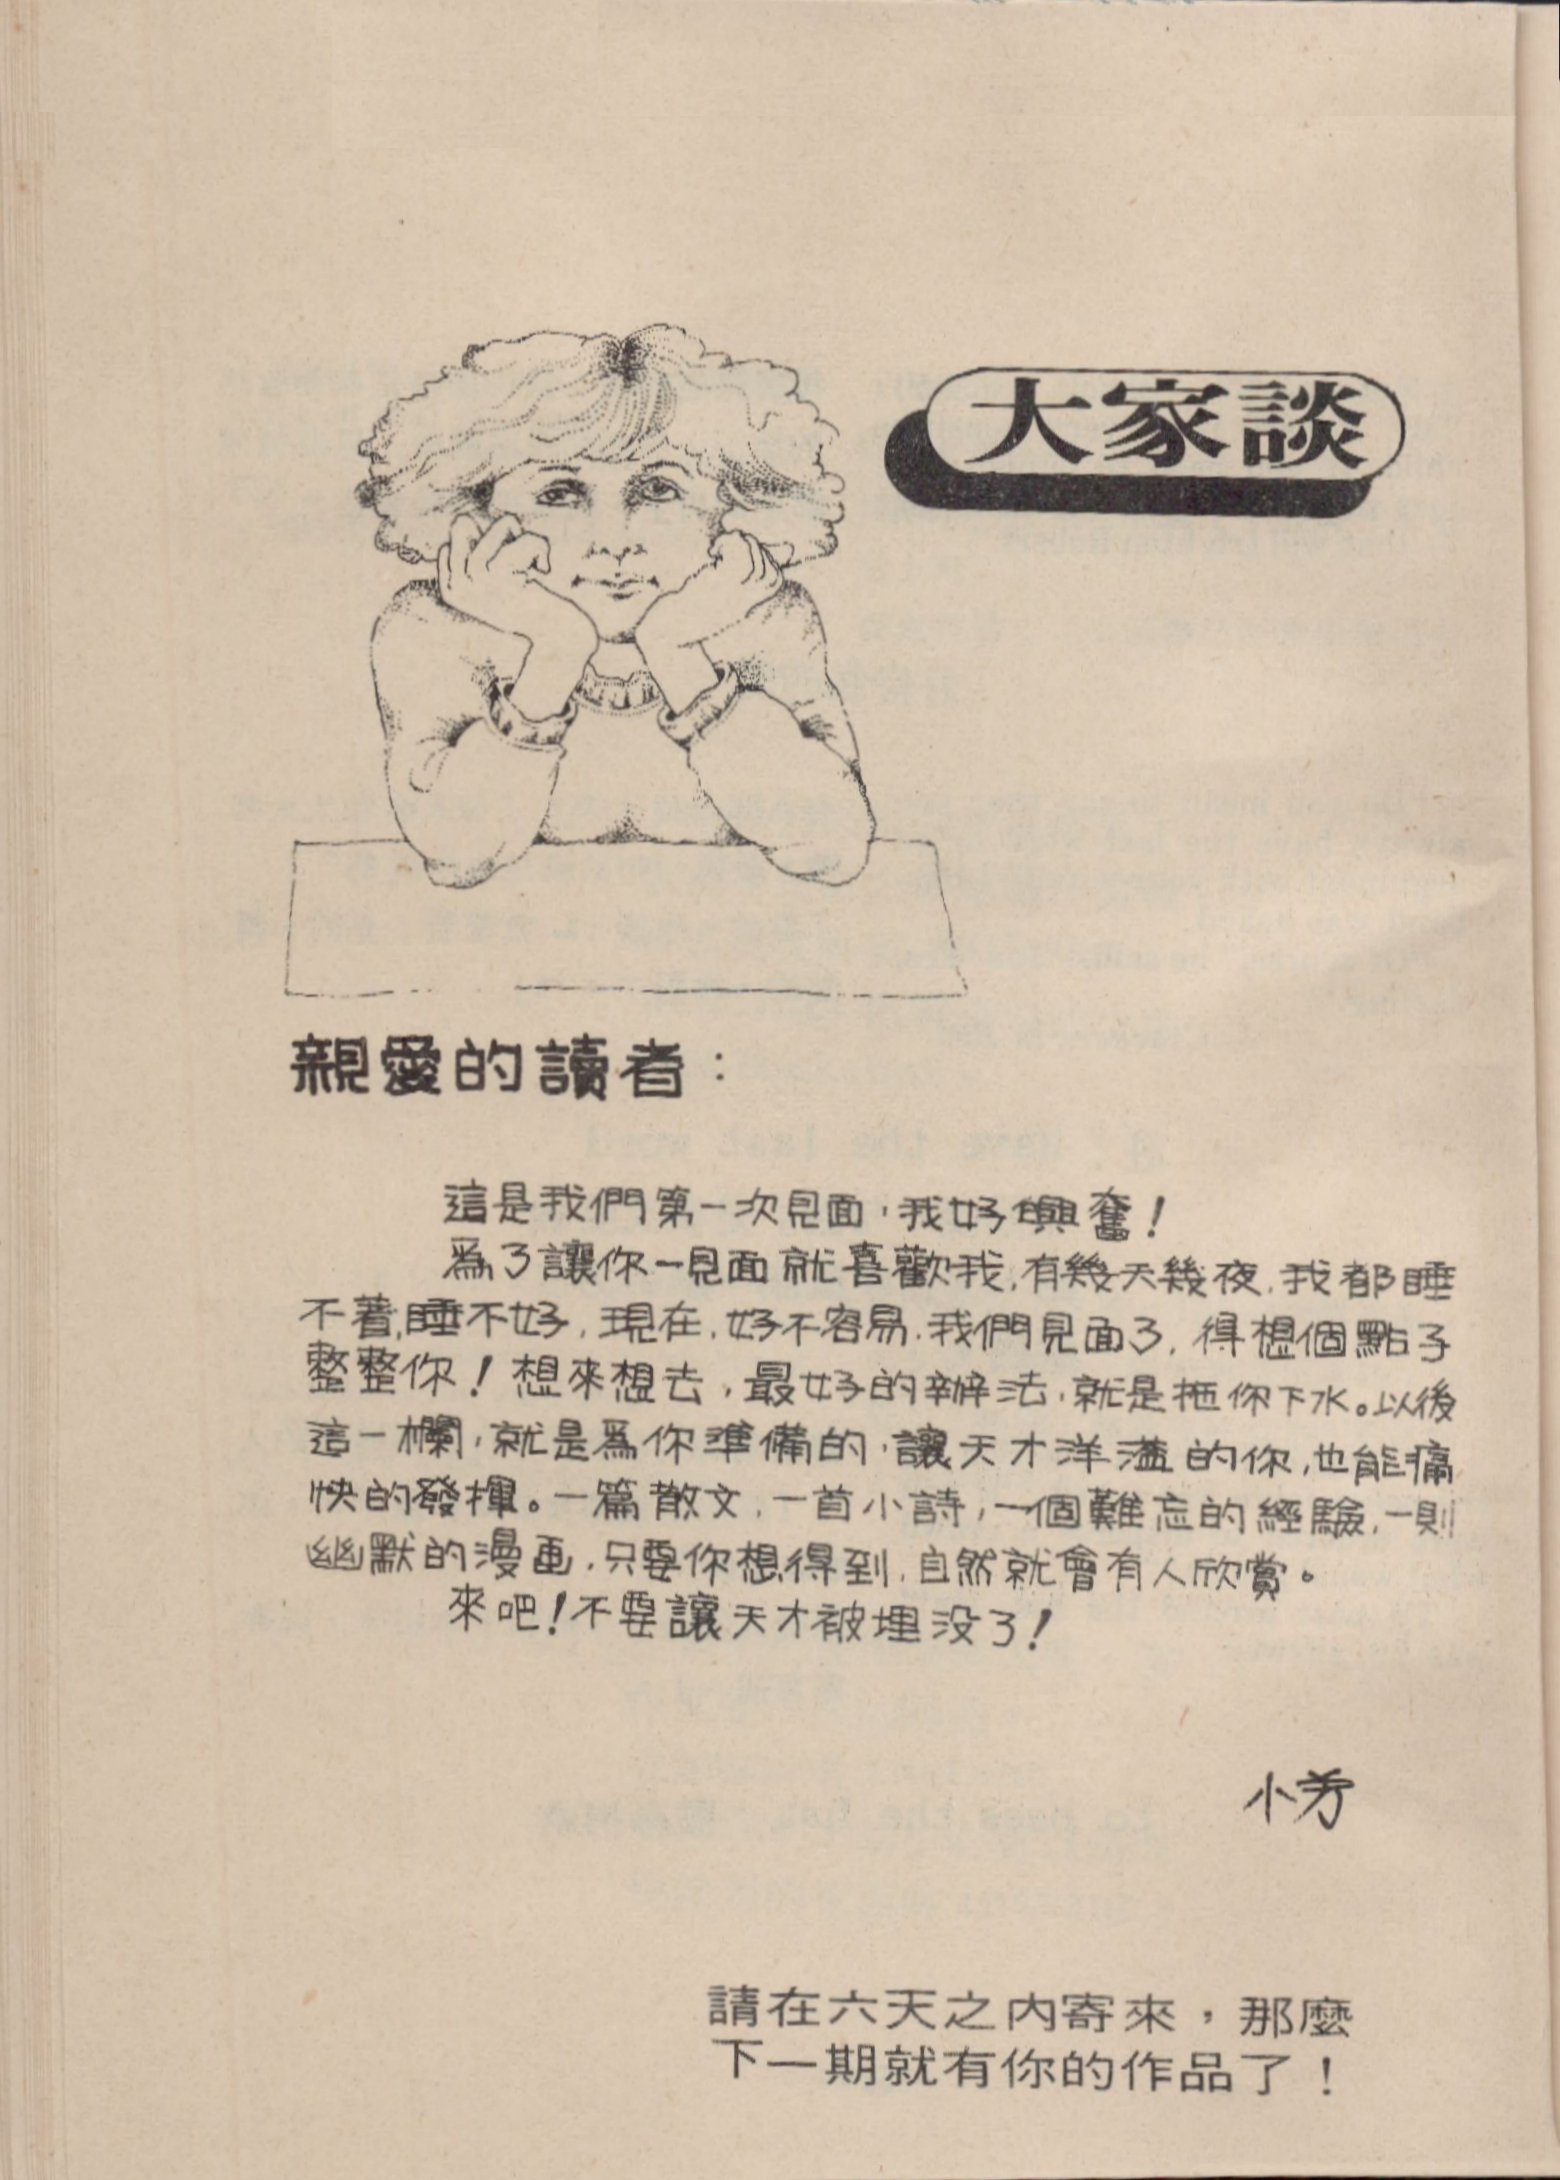 大家談
親愛的讀者：
這是我們第一次見面，我好興奮！
為了讓你一見面就喜歡我，有幾天幾夜，我都睡
不著，睡不好，現在，好不容易，我們見面了，得想個點子
整整你！想來想去，最好的辦法，就是拖你下水。以後
這一欄，就是為你準備的，讓天才洋溢的你，也能痛
快的發揮。一篇散文，一首小詩，一個難忘的經驗，一則
幽默的漫画，只要你想得到，自然就會有人欣賞。
來吧！不要讓天才被埋没了！
小芳
請在六天之內寄來，那麼
下一期就有你的作品了！